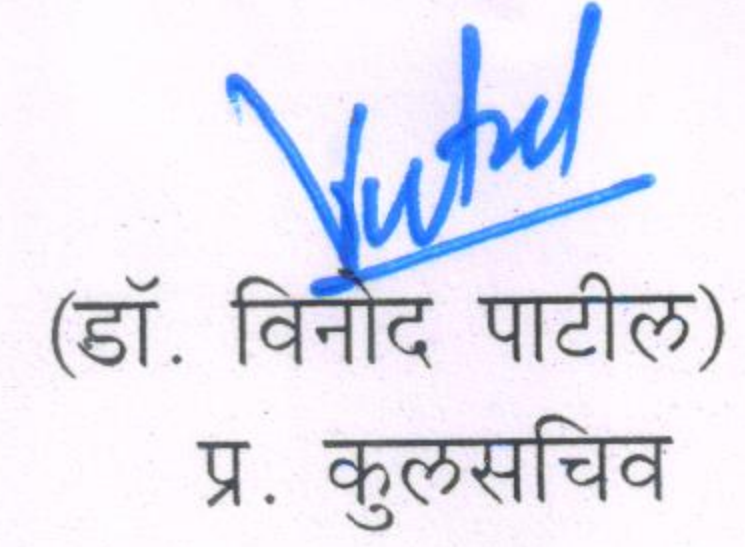 (डॉ. विनोद पाटील)
प्र. कुलसचिव